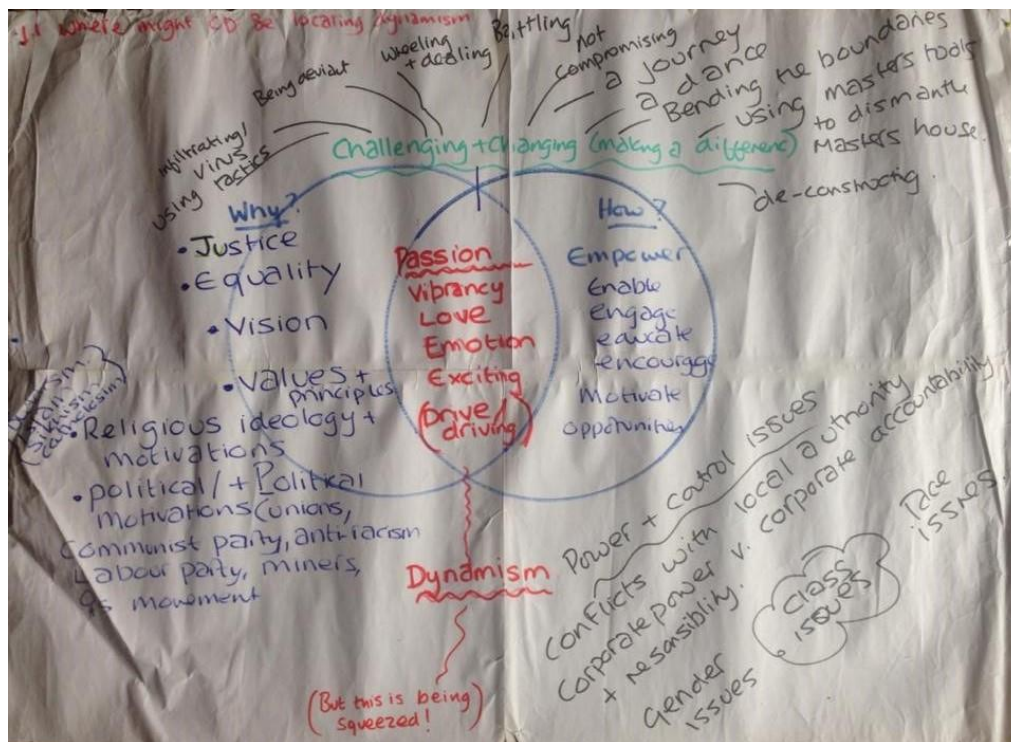 1.1 where might CD Be locating dynamism
Being deviant
Wheeling
+ dealing
Battling
not
compromising
a journey
a dance
Bending the boundaries
using masters tools
to dismantle
Masters house.
de-constructing.
infiltrating/
using virus
tactics
Challenging + Changing (making a different)
Why?
• Justice
• Equality
• Vision
• Values +
principles
• Religious ideology +
motivations
• political / + Political
motivations (unions,
Communist party, anti-racism
Labour party, miners,
movement
Passion
Vibrancy
Love
Emotion
Exciting
(Drive/
driving)
Dynamism
(But this is being
squeezed!)
How?
Empower
Enable
engage
educate
encourage
Motivate
opportunities
Power + control issues
Conflicts with local authority
Corporate power v. corporate accountability
+ resonsiblity.
Gender
issues
Class
issues
Race
issues.